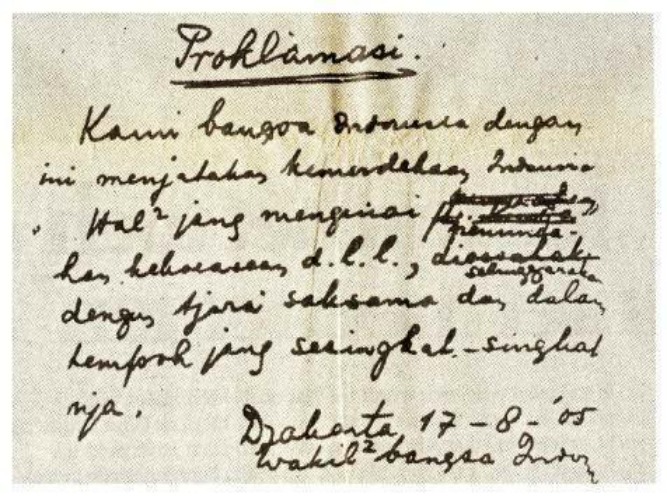 Proklamasi.
Kami bangsa Indonesia dengan
ini menjatakan kemerdekaan Indonesia
. Hal² jang mengenai
peminda-
han kekoeasaan d.l.l., dioesahakan
selenggarakan
dengan tjara saksama dan dalam
tempoh jang sesingkat-singkat
nja.
Djakarta, 17 - 8 - '05
Wakil² bangsa Indon